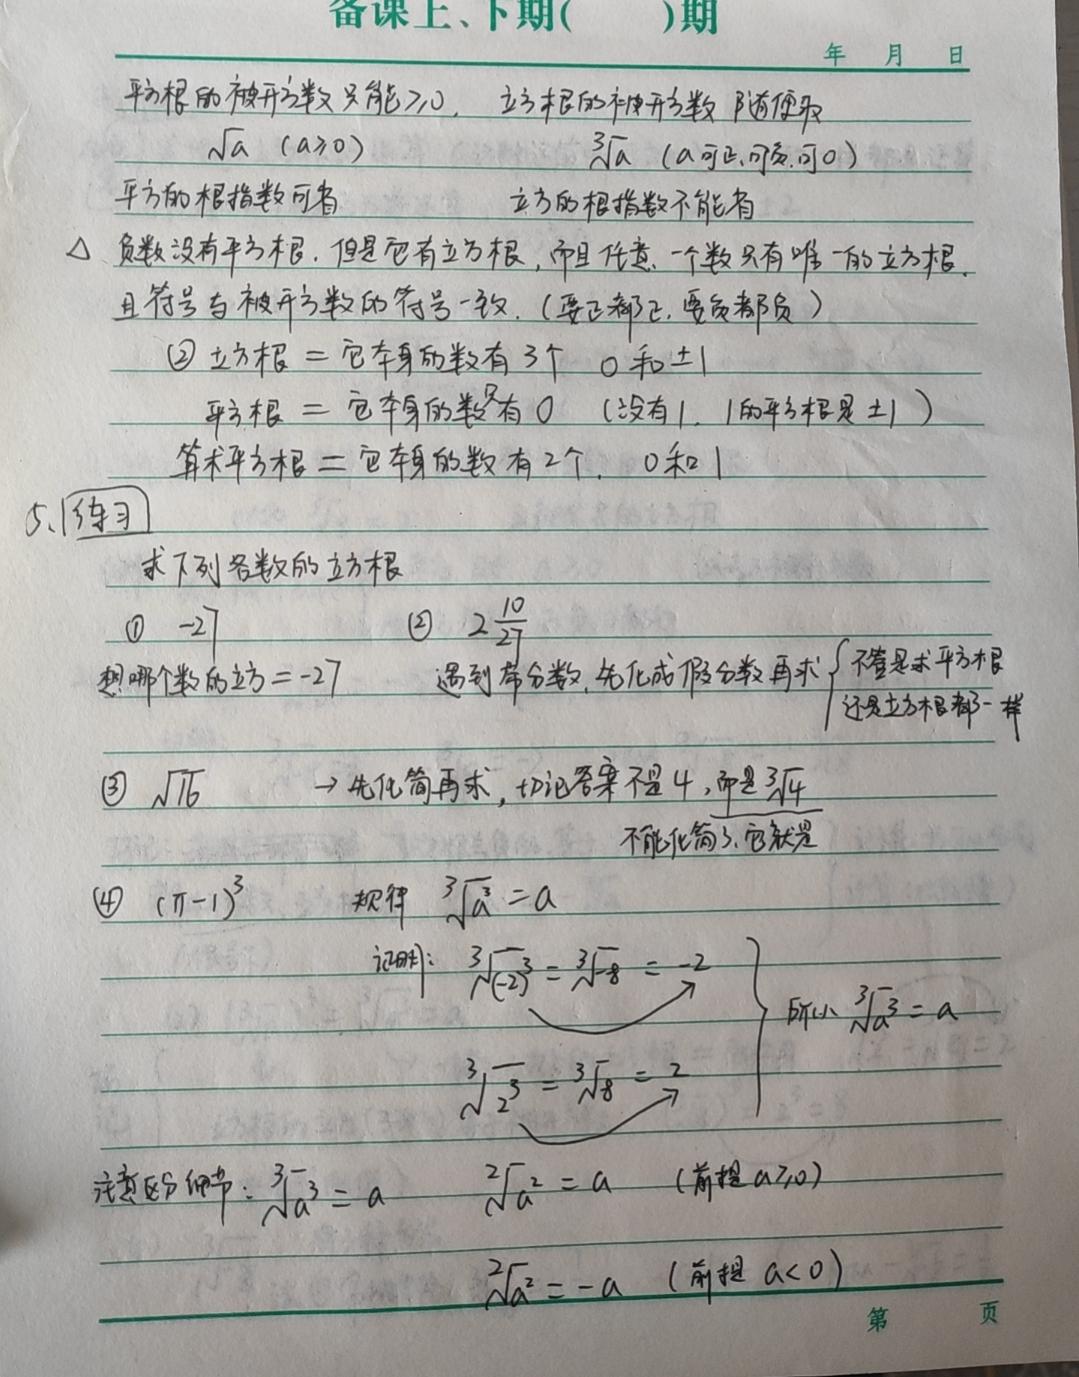 备课上、下期(　　)期
年 月 日
平方根的被开方数只能≥0. 立方根的被开方数随便取
√a (a≥0) ∛a (a可正.可负.可0)
平方的根指数可省 立方的根指数不能省
△ 负数没有平方根.但是它有立方根,而且任意一个数只有唯一的立方根.
且符号与被开方数的符号一致.(要正都正.要负都负)
② 立方根=它本身的数有3个 0和±1
平方根=它本身的数只有0 (没有1. 1的平方根是±1)
算术平方根=它本身的数有2个. 0和1
5. 练习
求下列各数的立方根
① -27 ② 2 10/27
想哪个数的立方=-27 遇到带分数,先化成假分数再求{不管是求平方根
还是立方根都一样
③ √16 →先化简再求,切记答案不是4,而是∛4
不能化简了.它就是
④ (π-1)³ 规律 ∛a³=a
证明: ∛(-2)³=∛-8=-2
所以 ∛a³=a
∛2³=∛8=2
注意区分细节: ∛a³=a ²√a²=a (前提a≥0)
²√a²=-a (前提 a<0)
第 页